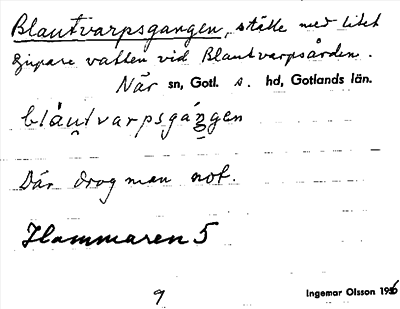 Blautvarpsgangen, ställe med litet
djupare vatten vid Blautvarpsården.
När sn, Gotl. s. hd, Gotlands län.
blåutvarpsgángen
Där drog man not.
Hammaren 5
9
Ingemar Olsson 1956